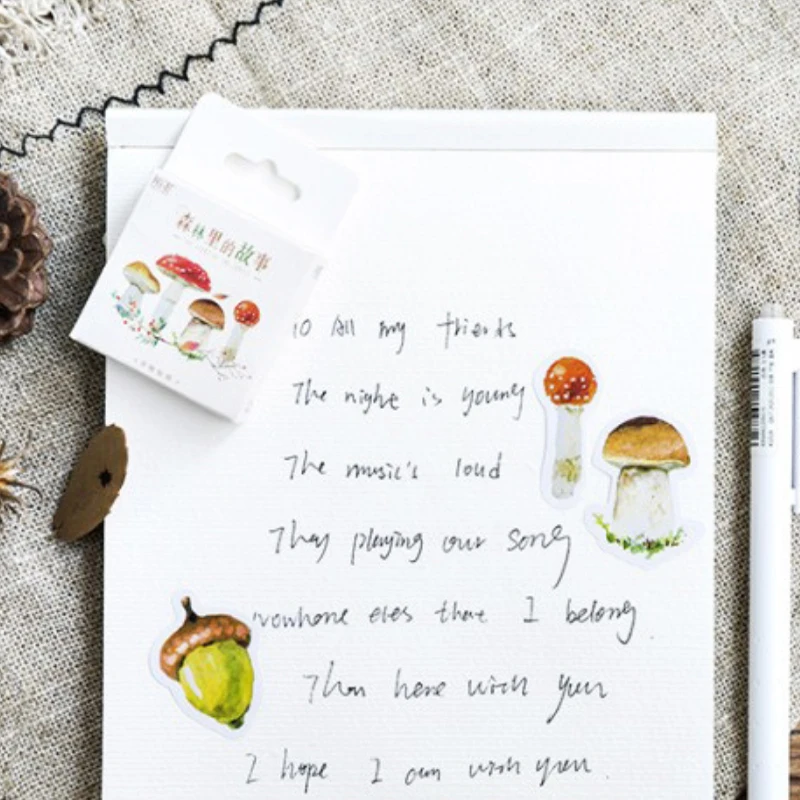 森林里的故事
To All my friends
The nighe is young
The music's loud
They playing our song
nowhone eles that I belong.
Than here wich you
I hope I am wish you.